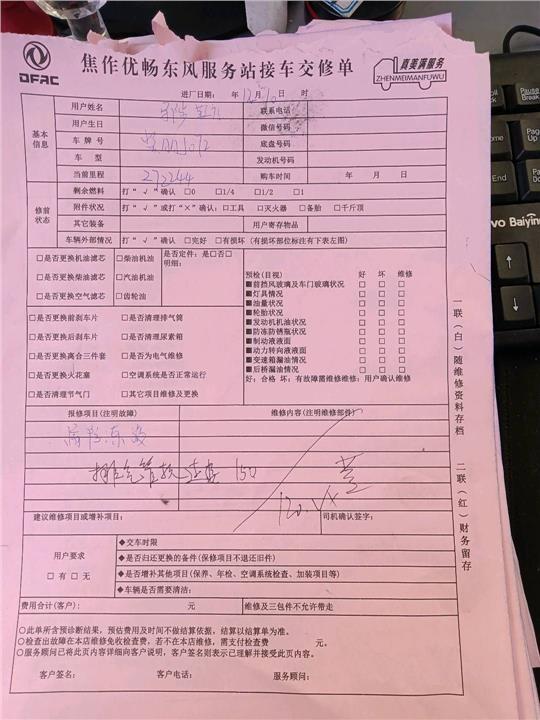 DFAC
焦作优畅东风服务站接车交修单
真美满服务
ZHENMEIMANFUWU
进厂日期: 年 12月 月 日 时
基本信息
用户姓名 联系电话
用户生日 微信号码
车牌号 底盘号码
车型 发动机号码
当前里程 272244 购车时间 年 月 日
修前状态
剩余燃料 打“√”确认 □0 □1/4 □1/2 □1
附件状况 打“√”或打“×”确认:□工具 □灭火器 □备胎 □千斤顶
其它装备 用户寄存物品
车辆外部情况 打“√”确认 □完好 □有损坏(有损部位标注有下表左图)
□是否更换机油滤芯 □柴油机油 是否定件:是□否□
明细:
□是否更换柴油滤芯 □汽油机油
□是否更换空气滤芯 □齿轮油
预检(目视) 好 坏 维修
■前挡风玻璃及车门玻璃状况 □ □ □
■灯具情况 □ □ □
■油量状况 □ □ □
■轮胎状况 □ □ □
■发动机机油情况 □ □ □
■防冻防锈瓶状况 □ □ □
■制动液液面 □ □ □
■动力转向液液面 □ □ □
■变速箱漏油情况 □ □ □
■后桥漏油情况 □ □ □
好:合格 坏:有故障需维修维修:用户确认维修
□是否更换前刹车片 □是否清理排气筒
□是否更换后刹车片 □是否清理尿素箱
□是否更换离合三件套 □是否为电气维修
□是否更换火花塞 □空调系统是否正常运行
□是否清理节气门 □其它项目维修及更换
报修项目(注明故障) 维修内容(注明维修部件)
排气管软连接 150
建议维修项目或增补项目: 司机确认签字:
用户要求
□有 □无
◆交车时限
◆是否归还更换的备件(保修项目不退还旧件)
◆是否增补其他项目(保养、年检、空调系统检查、加装项目等)
◆车辆是否需要清洁:
费用合计(客户): 元 维修及三包件不允许带走
○此单所含预诊断结果,预估费用及时间不做结算依据,结算以结算单为准。
○检查出故障在本店维修免收检查费,若不在本店维修,需支付检查费 元。
○服务顾问已将此页内容详细向客户说明,客户签名则表示已理解并接受此页内容。
客户签名: 客户电话: 服务顾问:
一联(白)随维修资料存档 二联(红)财务留存
Scroll
Lock
Pause
Break
Baiying